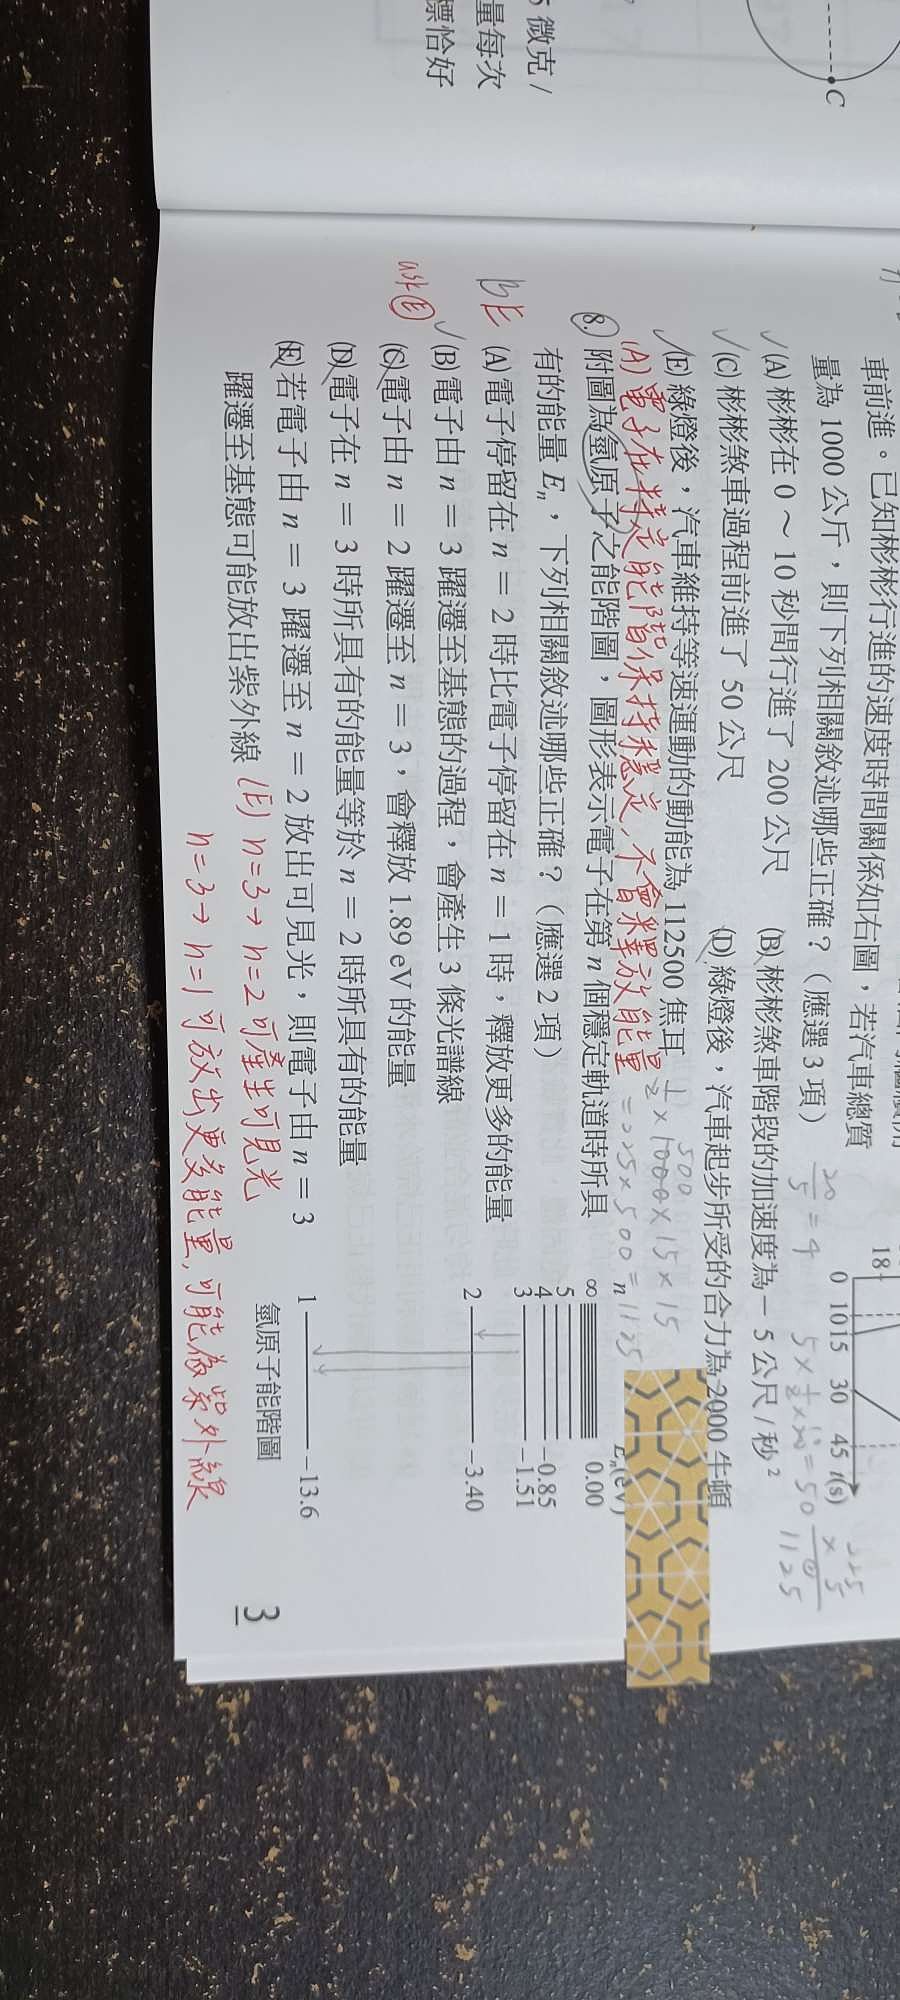 5 微克 /
量每次
標恰好
C
車前進。已知彬彬行進的速度時間關係如右圖，若汽車總質
量為 1000 公斤，則下列相關敘述哪些正確？（應選 3 項）
20/5 = 4
✓(A) 彬彬在 0 ～ 10 秒間行進了 200 公尺
(B) 彬彬煞車階段的加速度為 − 5 公尺 / 秒²
✓(C) 彬彬煞車過程前進了 50 公尺
(D) 綠燈後，汽車起步所受的合力為 2000 牛頓
✓(E) 綠燈後，汽車維持等速運動的動能為 112500 焦耳
18
0 10 15 30 45 t(s)
500
1/2 × 1000 × 15 × 15
= 225 × 500 = 1125
225
× 5
1125
(A) 電子在特定能階保持穩定，不會釋放能量
8. 附圖為氫原子之能階圖，圖形表示電子在第 n 個穩定軌道時所具
有的能量 Eₙ，下列相關敘述哪些正確？（應選 2 項）
BE
(A) 電子停留在 n = 2 時比電子停留在 n = 1 時，釋放更多的能量
✓(B) 電子由 n = 3 躍遷至基態的過程，會產生 3 條光譜線
ask (E)
(C) 電子由 n = 2 躍遷至 n = 3，會釋放 1.89 eV 的能量
(D) 電子在 n = 3 時所具有的能量等於 n = 2 時所具有的能量
(E) 若電子由 n = 3 躍遷至 n = 2 放出可見光，則電子由 n = 3
躍遷至基態可能放出紫外線
(E) n=3→n=2 可產生可見光
n=3→n=1 可放出更多能量，可能為紫外線
n Eₙ(eV)
∞ 0.00
5
4 −0.85
3 −1.51
2 −3.40
1 −13.6
氫原子能階圖
3